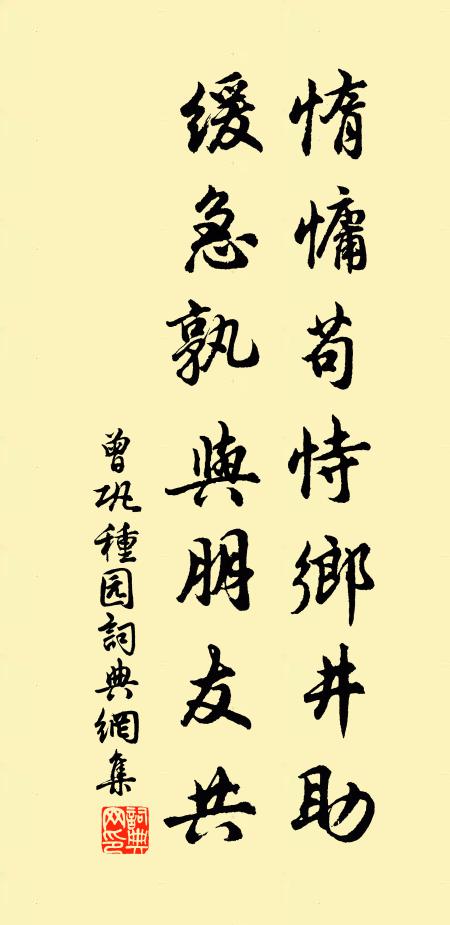 惰慵苟恃鄉井助
緩急孰與朋友共
曾巩種园詞典網集
詞典网印